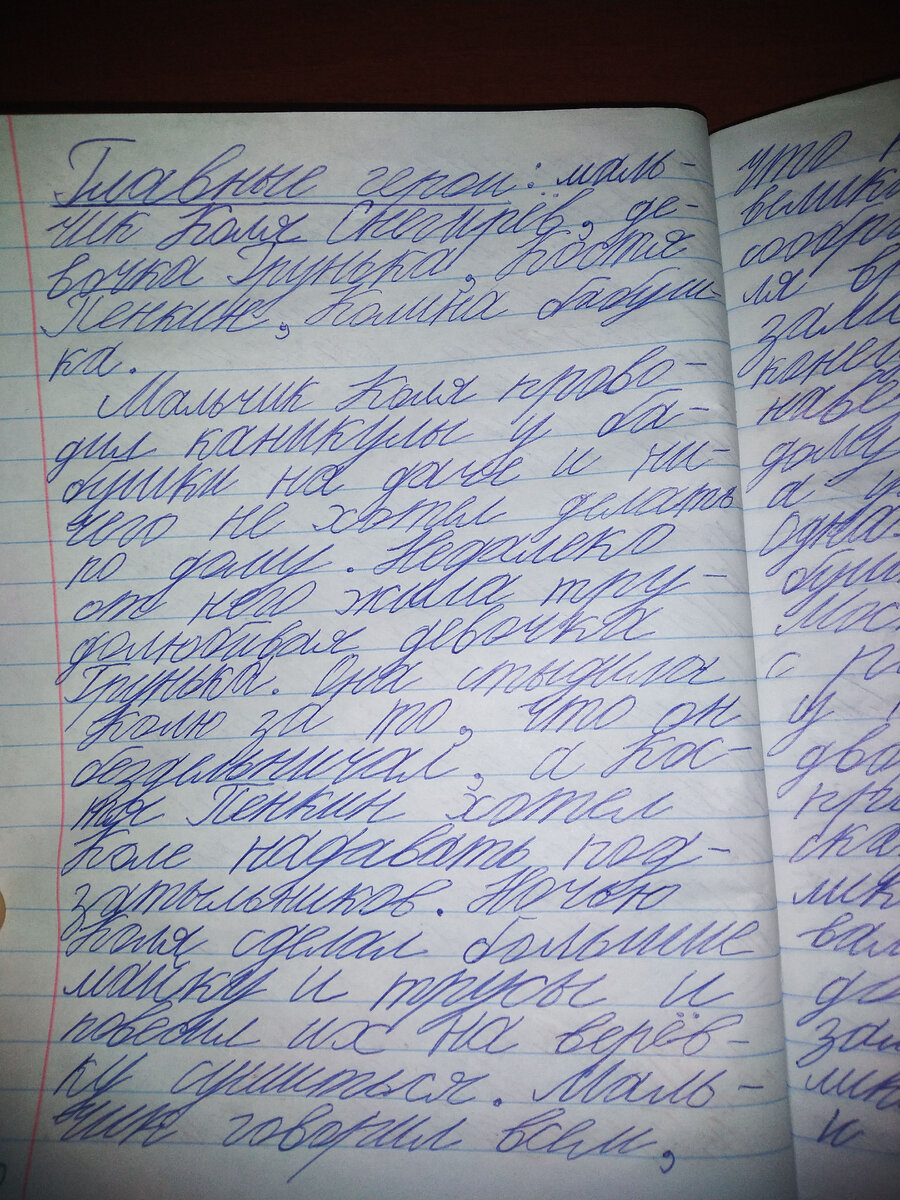 Главные герои: маль-
чик Коля Снегирёв, де-
вочка Грунька, Костя
Пенкин, Колина бабуш-
ка.
Мальчик Коля прово-
дил каникулы у ба-
бушки на даче и ни-
чего не хотел делать
по дому. Недалеко
от него жила тру-
долюбивая девочка
Грунька. Она стыдила
Колю за то, что он
бездельничал, а Кос-
тя Пенкин хотел
Коле надавать под-
затыльников. Ночью
Коля сделал большие
майку и трусы и
повесил их на верёв-
ку сушиться. Маль-
чик говорил всем,
что
велик
сообр
ля вр
зами
конец
наве
дому
а у
одна
буш
Мос
с
у
два
при
ска
лик
вал
да
зам
лик
и